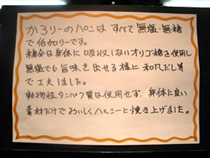 かろりーのパンは すべて 無塩・無糖
で低カロリーです。
糖分は身体に吸収しないオリゴ糖を使用し
無塩でも旨味を出せる様に 和風だし等
で工夫しました。
動物性タンパク質は使用せず、身体に良い
素材だけでおいしくヘルシーに焼き上げました。